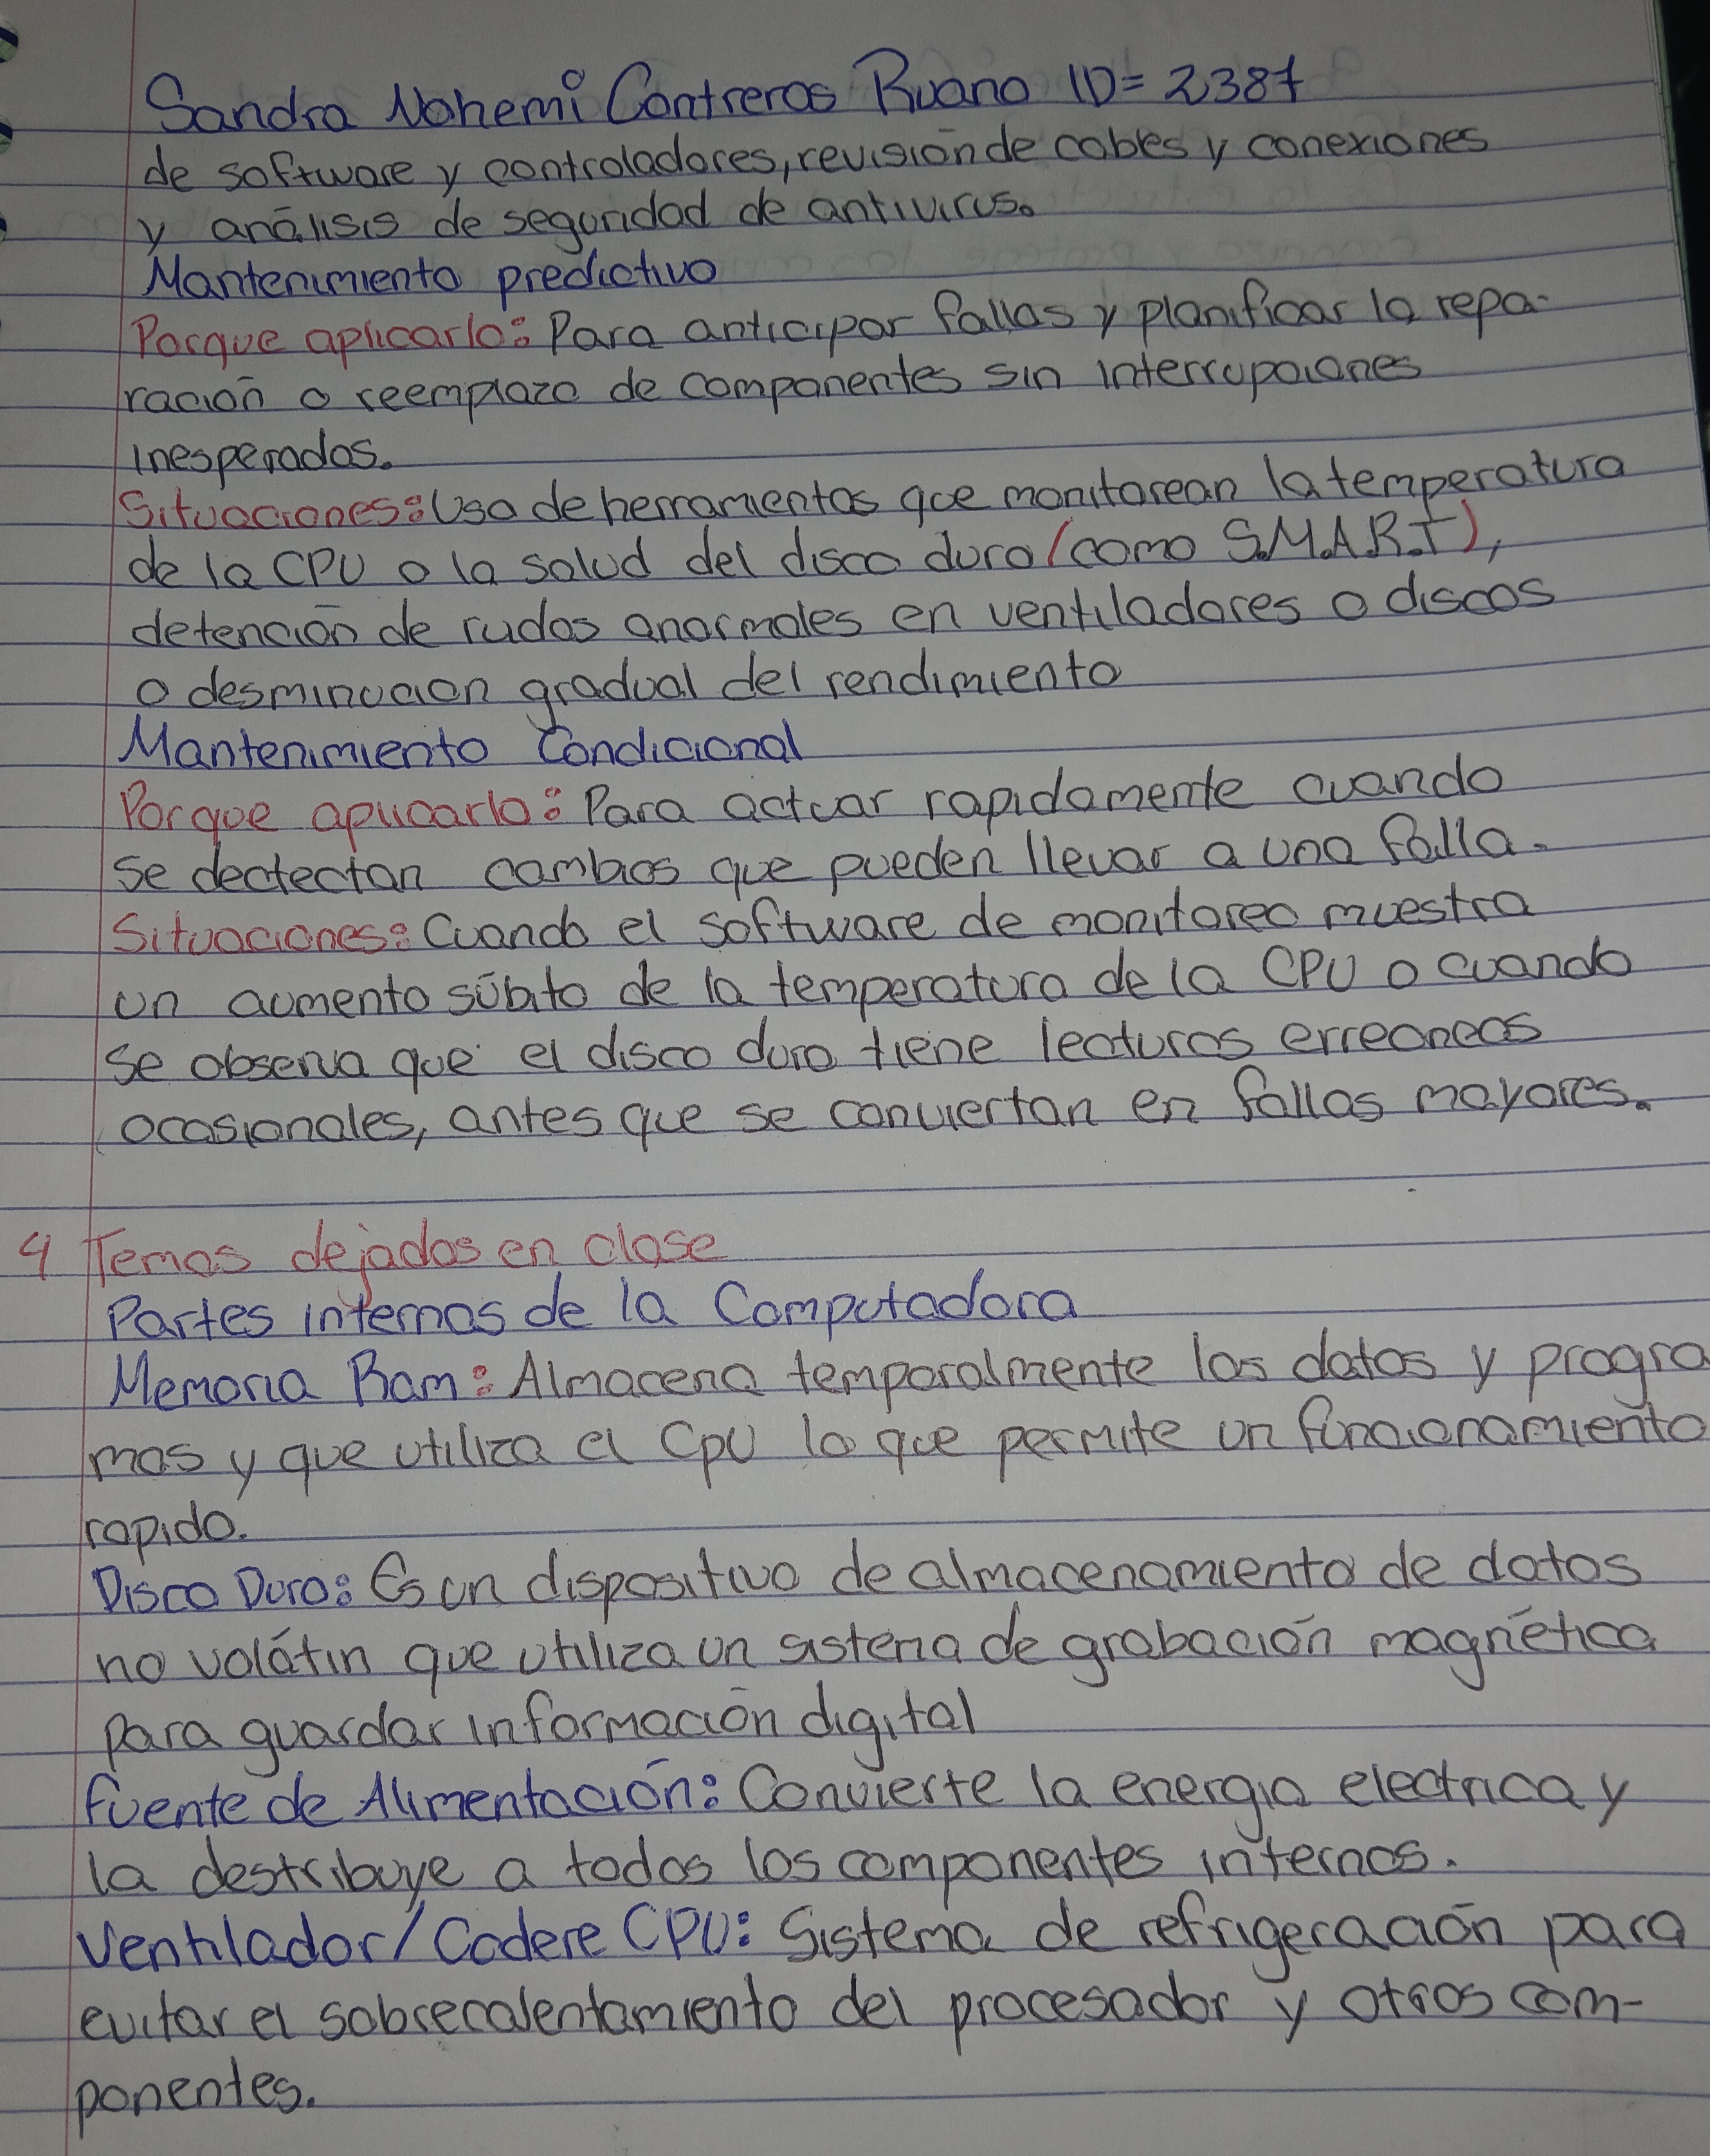 Sandra Nohemi Contreras Ruano ID= 2387
de software y controladores, revisión de cables y conexiones
y análisis de seguridad de antivirus.
Mantenimiento predictivo
Porque aplicarlo: Para anticipar fallas y planificar la repa-
ración o reemplazo de componentes sin interrupciones
inesperados.
Situaciones: Uso de herramientas que monitorean la temperatura
de la CPU o la salud del disco duro (como S.M.A.R.T),
detención de rudos anormales en ventiladores o discos
o desminucion gradual del rendimiento
Mantenimiento Condicional
Porque aplicarlo: Para actuar rapidamente cuando
se dectectan cambios que pueden llevar a una falla.
Situaciones: Cuando el software de monitoreo muestra
un aumento súbito de la temperatura de la CPU o cuando
se observa que el disco duro tiene lecturas erreoneas
ocasionales, antes que se conviertan en fallas mayores.
4 Temas dejados en clase
Partes internas de la Computadora
Memoria Ram: Almacena temporalmente los datos y progra
mas y que utiliza el Cpu lo que permite un funcionamiento
rapido.
Disco Duro: Es un dispositivo de almacenamiento de datos
no volátin que utiliza un sistema de grabación magnética
para guardar información digital
fuente de Alimentación: Convierte la energia electrica y
la destribuye a todos los componentes internos.
Ventilador/Codere CPU: Sistema de refrigeración para
evitar el sobrecalentamiento del procesador y otros com-
ponentes.